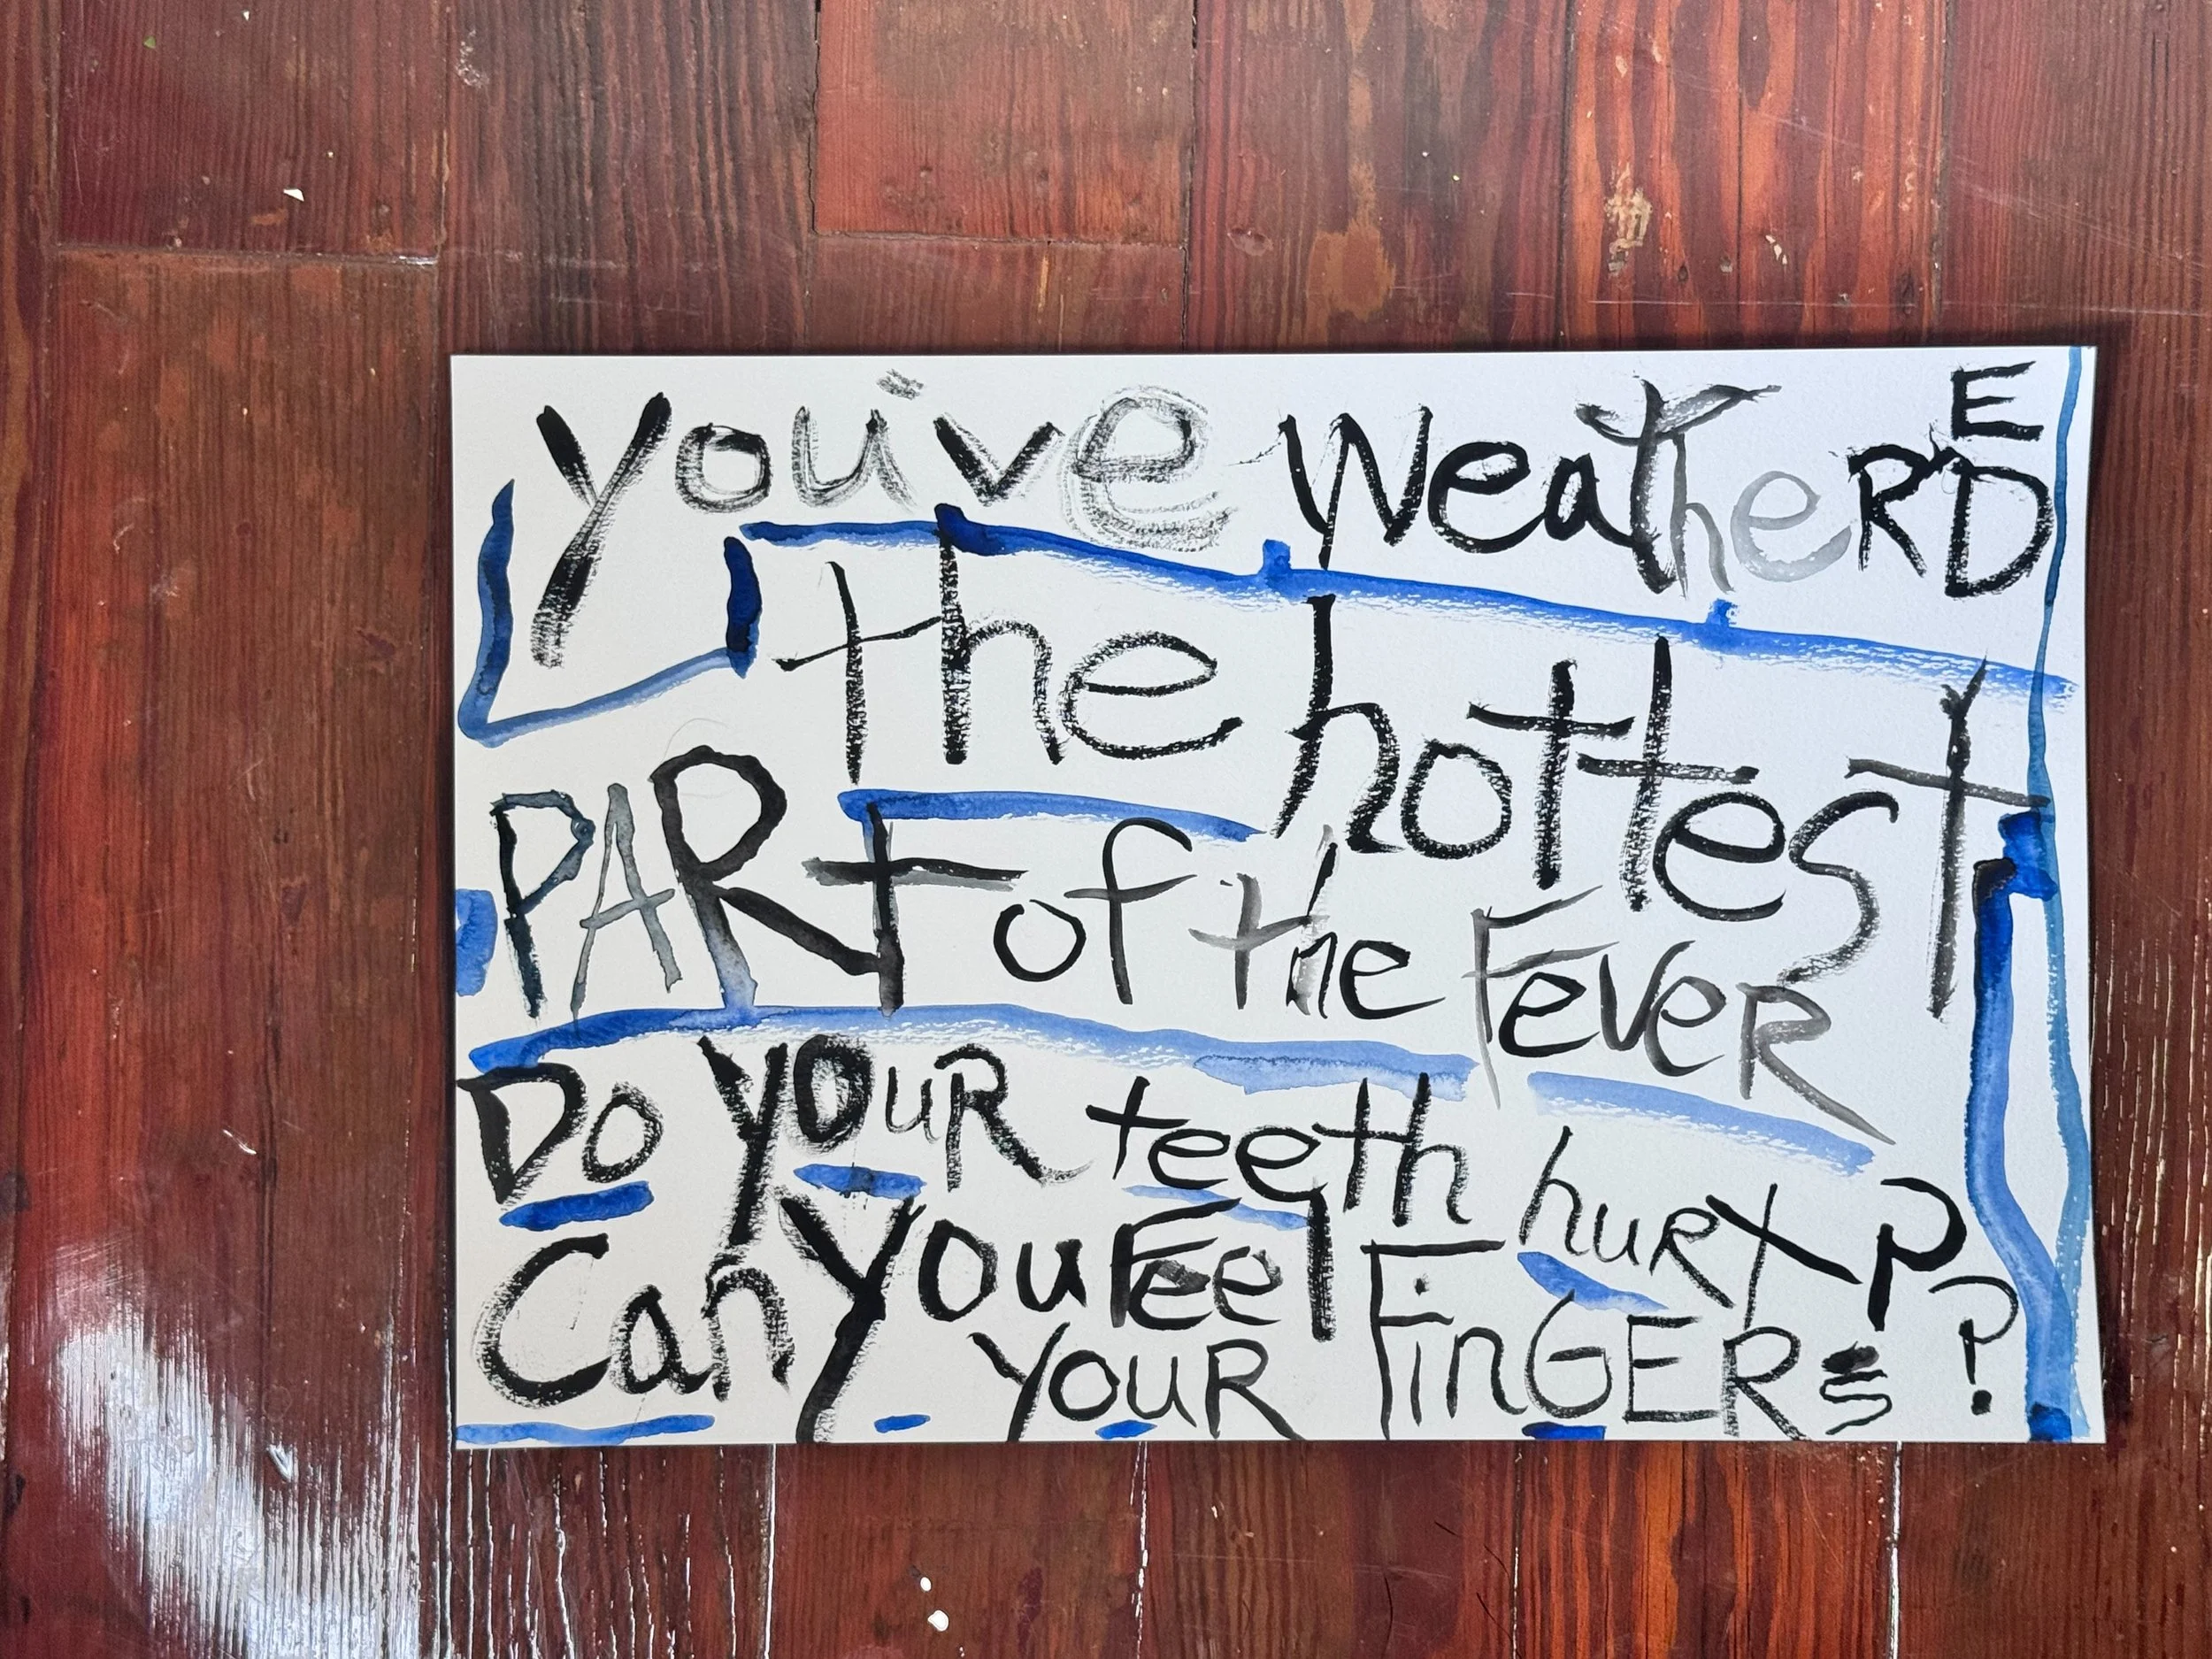 you've weatherED
the hottest
PART of the Fever
Do yOuR teeth huRt?
Can You Feel
YOuR FinGERs?